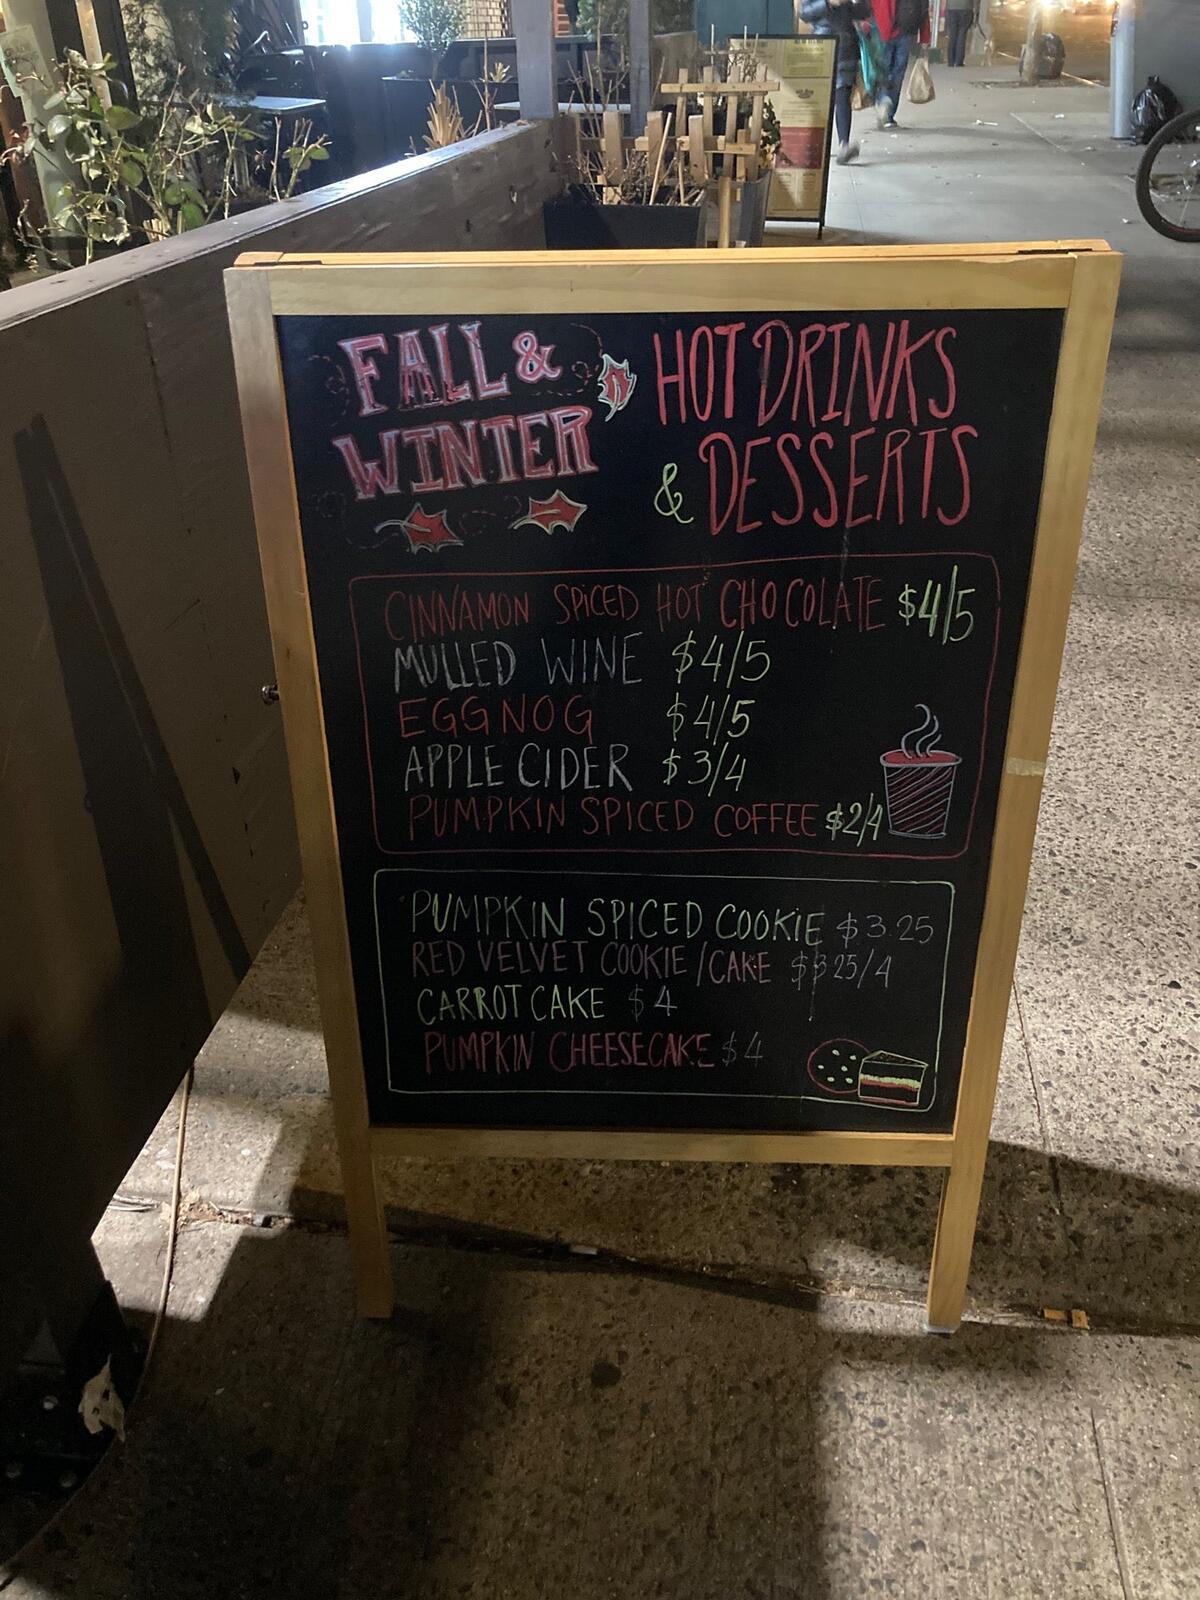 FALL &
WINTER
HOT DRINKS
& DESSERTS
CINNAMON SPICED HOT CHOCOLATE $4/5
MULLED WINE $4/5
EGGNOG $4/5
APPLE CIDER $3/4
PUMPKIN SPICED COFFEE $2/4
PUMPKIN SPICED COOKIE $3.25
RED VELVET COOKIE/CAKE $3.25/4
CARROT CAKE $4
PUMPKIN CHEESECAKE $4